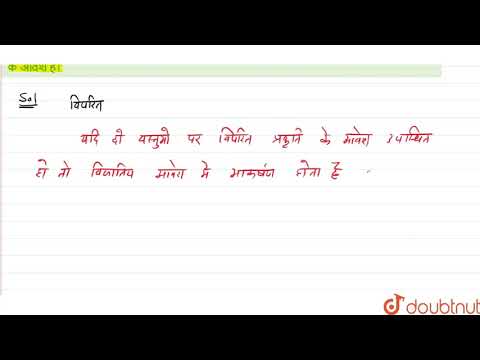 के आवेश है।
Sol विपरित
यदि दो वस्तुओ पर विपरित प्रकृति के आवेश उपस्थित
हो तो विजातिय आवेश मे आकर्षण होता है
doubtnut